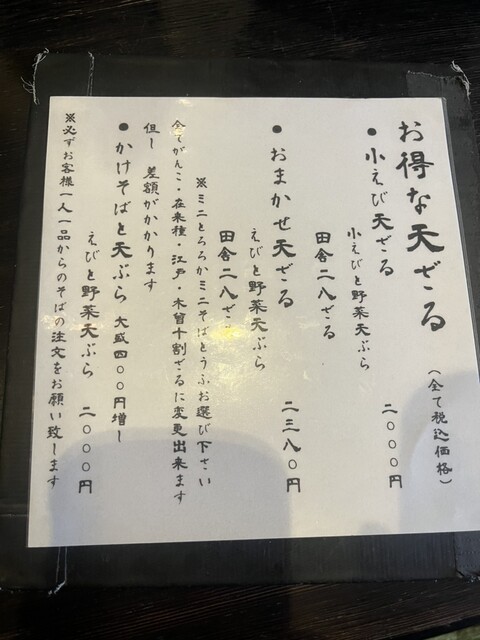 お得な天ざる
(全て税込価格)
●小えび天ざる
小えびと野菜天ぷら
二〇〇〇円
田舎二八ざる
●おまかせ天ざる
えびと野菜天ぷら
二三八〇円
田舎二八ざる
※ミニとろろかミニそばとうふお選び下さい
全てがんこ・在来種・江戸・木曽十割ざるに変更出来ます
但し 差額がかかります
●かけそばと天ぷら 大盛四〇〇円増し
えびと野菜天ぷら 二〇〇〇円
※必ずお客様一人一品からのそばの注文をお願い致します